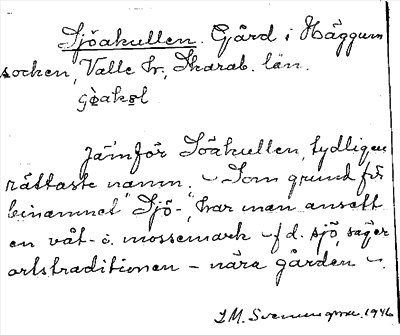 Sjöakullen. Gård i Häggum
socken, Valle hr, Skarab. län.
Jämför Söäkullen, tydligen
rättaste namn. – Som grund för
binamnet "Sjö-", har man ansett
en våt- o. mossemark – f d. sjö, säger
ortstraditionen – nära gården –.
1946